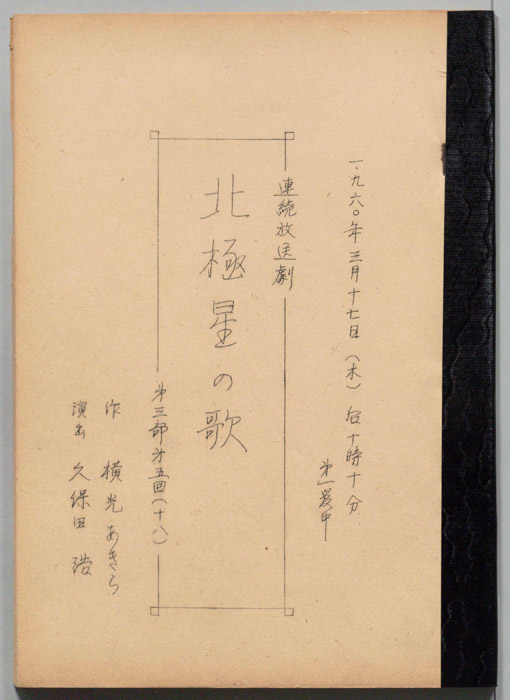 一九六〇年三月十七日(木)后十時十分
連続放送劇
北極星の歌
第三部第五回(十八)
作 横光あきら
演出 久保田 浩